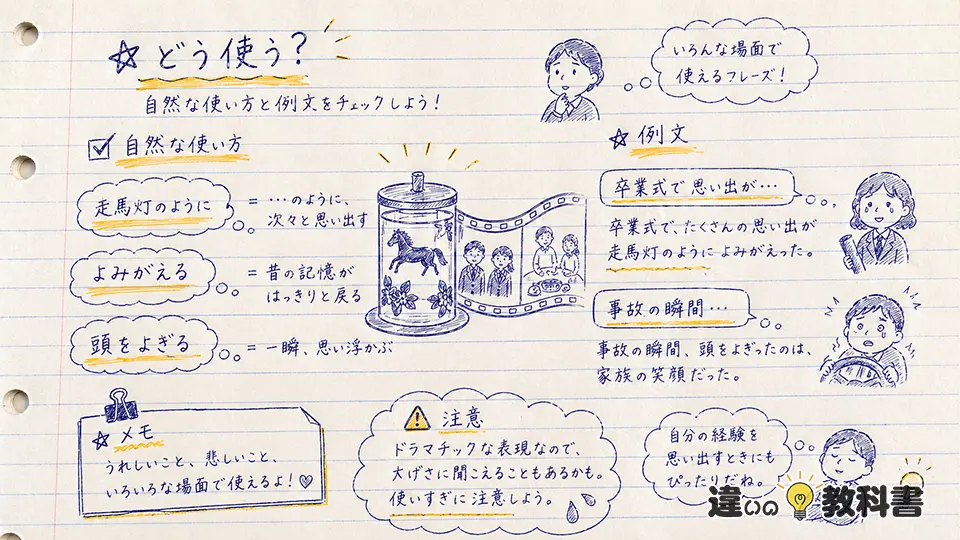 どう使う?
自然な使い方と例文をチェックしよう!
いろんな場面で
使えるフレーズ!
自然な使い方
走馬灯のように
= …のように、
次々と思い出す
よみがえる
= 昔の記憶が
はっきりと戻る
頭をよぎる
= 一瞬、思い浮かぶ
例文
卒業式で思い出が…
卒業式で、たくさんの思い出が
走馬灯のようによみがえった。
事故の瞬間…
事故の瞬間、頭をよぎったのは、
家族の笑顔だった。
メモ
うれしいこと、悲しいこと、
いろいろな場面で使えるよ!
注意
ドラマチックな表現なので、
大げさに聞こえることもあるかも。
使いすぎに注意しよう。
自分の経験を
思い出すときにも
ぴったりだね。
違いの教科書